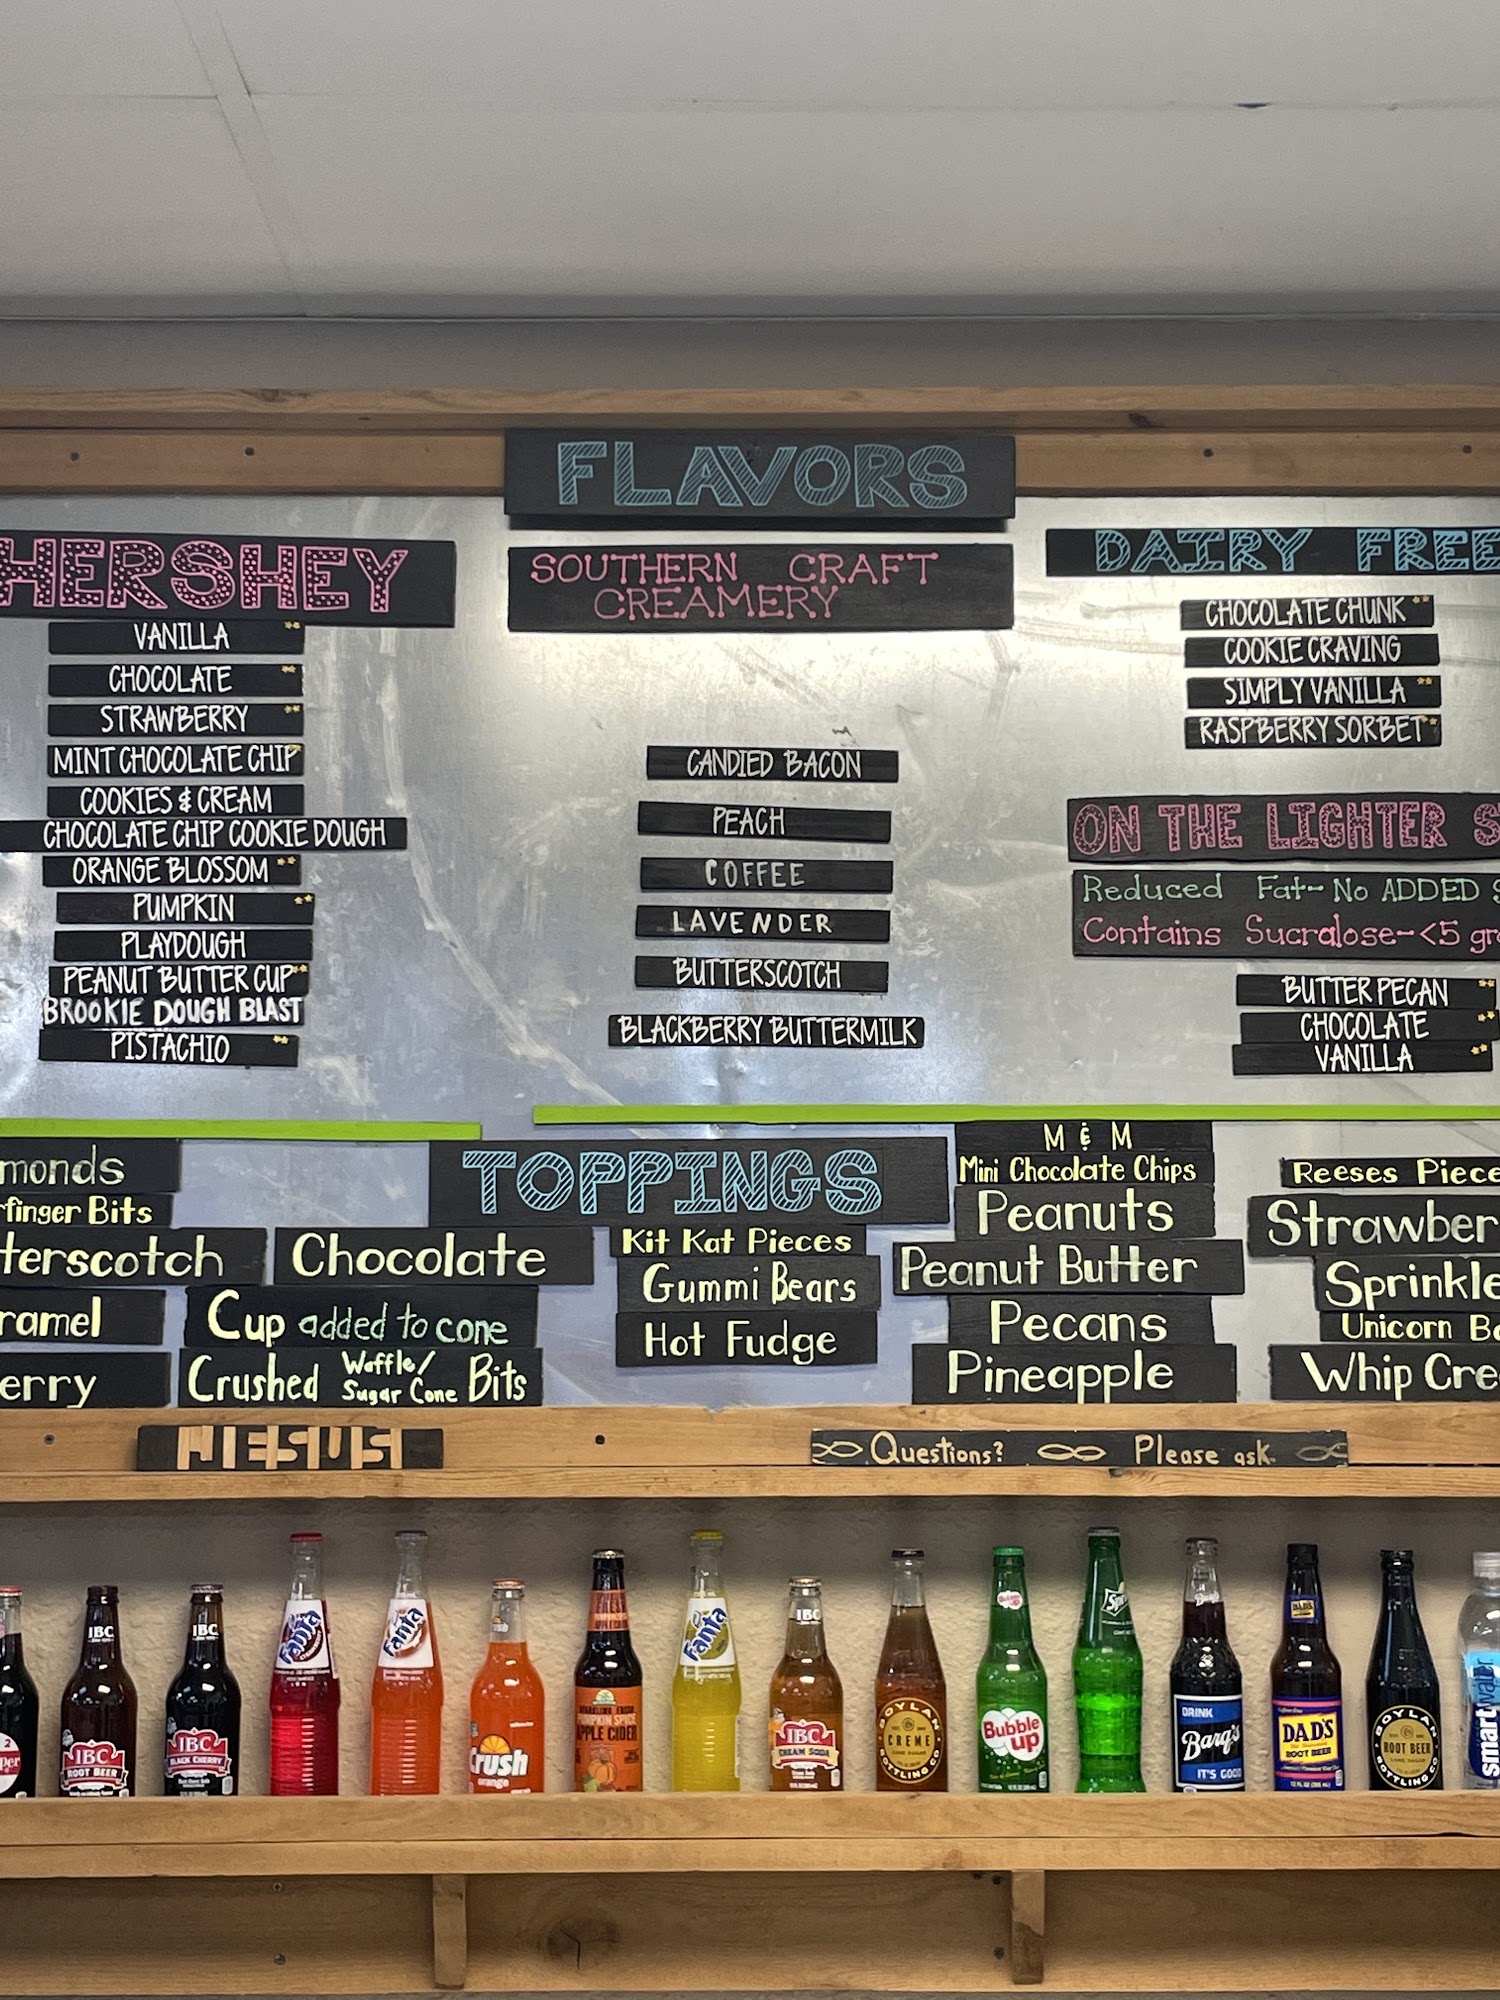 FLAVORS
HERSHEY
VANILLA
CHOCOLATE
STRAWBERRY
MINT CHOCOLATE CHIP
COOKIES & CREAM
CHOCOLATE CHIP COOKIE DOUGH
ORANGE BLOSSOM
PUMPKIN
PLAYDOUGH
PEANUT BUTTER CUP
BROOKIE DOUGH BLAST
PISTACHIO
SOUTHERN CRAFT
CREAMERY
CANDIED BACON
PEACH
COFFEE
LAVENDER
BUTTERSCOTCH
BLACKBERRY BUTTERMILK
DAIRY FREE
CHOCOLATE CHUNK
COOKIE CRAVING
SIMPLY VANILLA
RASPBERRY SORBET
ON THE LIGHTER S
Reduced Fat-No ADDED S
Contains Sucralose-<5 gr
BUTTER PECAN
CHOCOLATE
VANILLA
TOPPINGS
monds
rfinger Bits
terscotch
ramel
erry
Chocolate
Cup added to cone
Crushed Waffle/ Sugar Cone Bits
Kit Kat Pieces
Gummi Bears
Hot Fudge
M & M
Mini Chocolate Chips
Peanuts
Peanut Butter
Pecans
Pineapple
Reeses Piece
Strawber
Sprinkle
Unicorn
Whip Cre
JESUS
Questions? Please ask.
per
IBC
IBC
ROOT BEER
IBC
IBC
BLACK CHERRY
Fanta
Fanta
Crush
orange
PUMPKIN SPICE
APPLE CIDER
Fanta
IBC
IBC
CREAM SODA
BOYLAN
CREME
CANE SUGAR
BOTTLING CO
Bubble
up
Sprite
Barq's
DRINK
Barq's
IT'S GOOD
DAD'S
DAD'S
ROOT BEER
BOYLAN
ROOT BEER
BOTTLING CO
smartwater